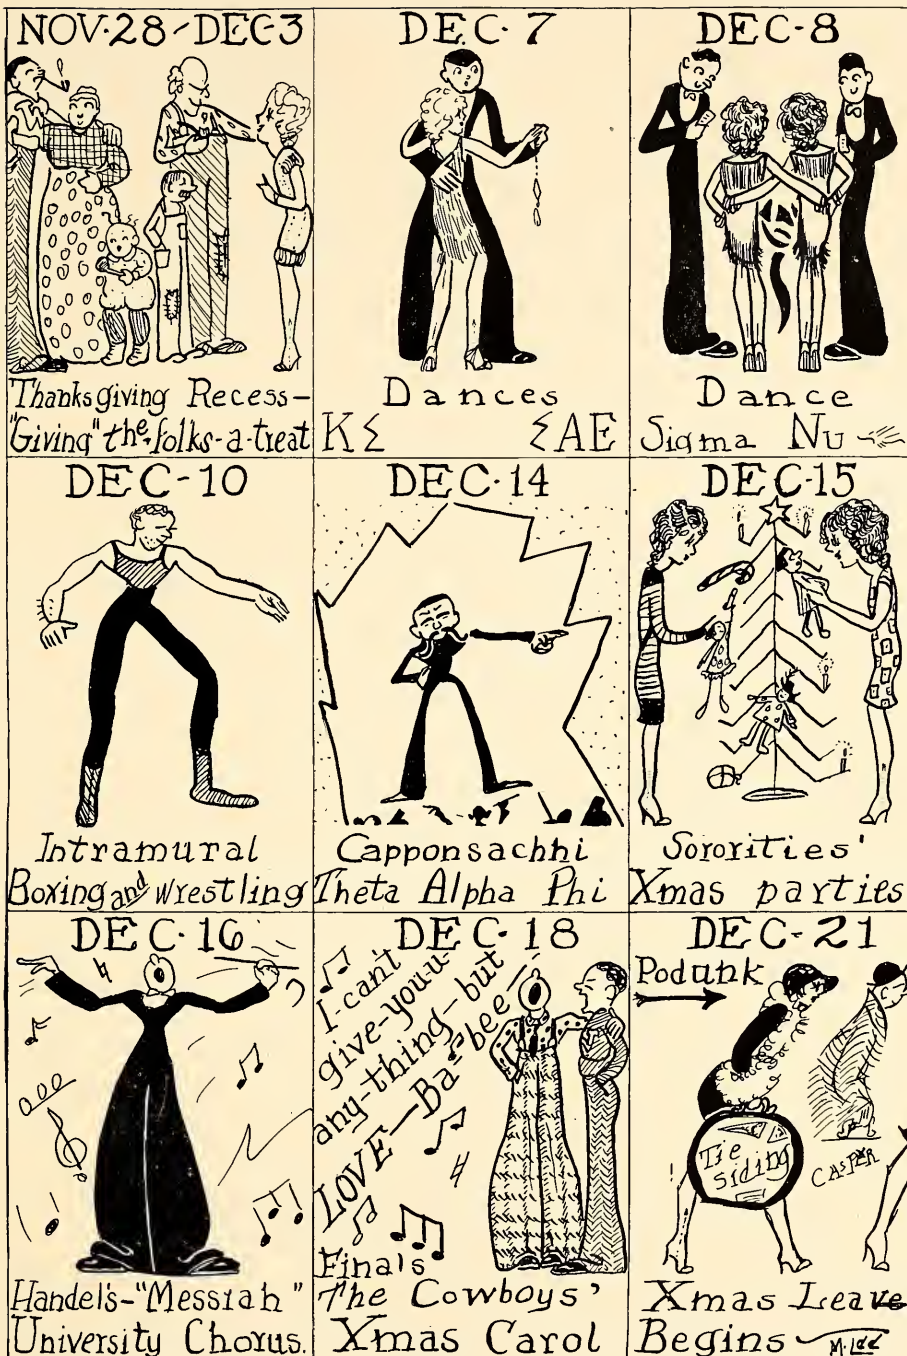 NOV·28-DEC·3
Thanksgiving Recess-
"Giving" the folks-a-treat
DEC·7
Dances
ΚΣ ΣAE
DEC-8
Dance
Sigma Nu
DEC-10
Intramural
Boxing and Wrestling
DEC·14
Capponsachhi
Theta Alpha Phi
DEC-15
Sororities'
Xmas parties
DEC·16
Handel's-"Messiah"
University Chorus.
DEC·18
I-can't
give-you-u-
any-thing-but
LOVE-Ba-bee-
Finals
The Cowboys'
Xmas Carol
DEC-21
Podunk
Tie
siding
CASPER
Xmas Leave
Begins
M.Lee